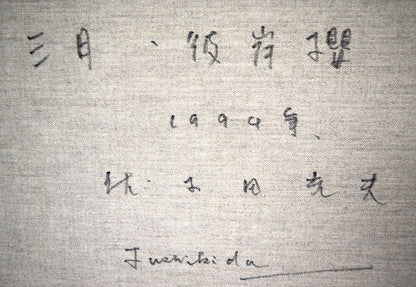 三月・彼岸櫻
1994年、
伏木田光夫
Fushikida